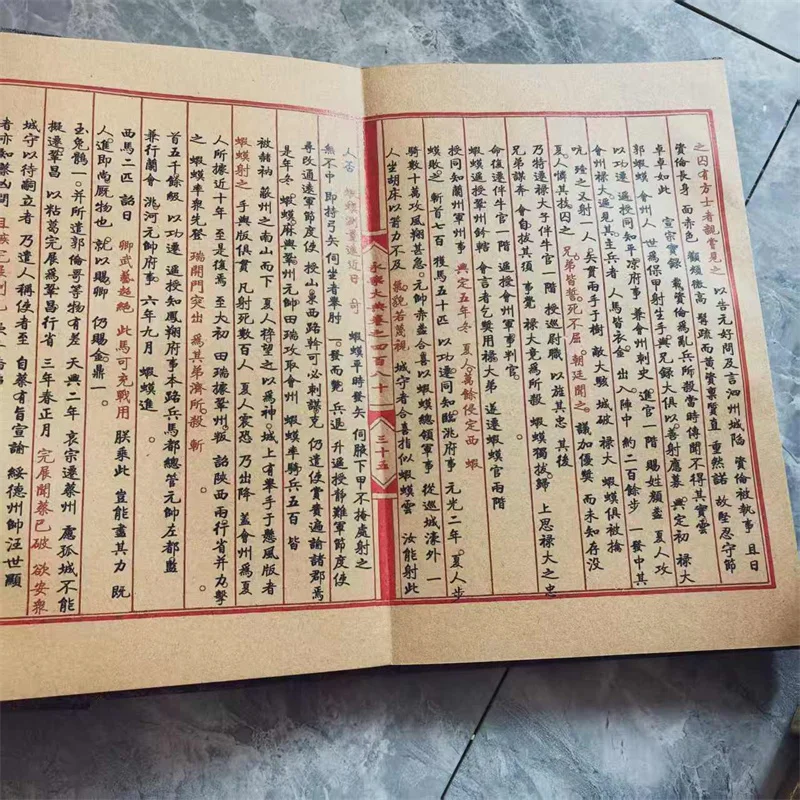 之囚有方士者親嘗見之 以告元好問及言泗州城陷 資倫被執事 且曰
資倫長身 而赤色 顴頰微高 髯疏而黃資稟質直 重然諾 故堅忍守節
卓卓如此 宣宗實錄 載資倫爲亂兵所殺當時傳聞不得其實雲
郭蝦蟆 會州人 世爲保甲射生手與 兄錄大俱以善射應募 興定初 祿大
以功遷 遥授同知平凉府事 兼會州刺史 進官一階 賜姓顏盞 夏人攻
會州祿大遥見其主兵者 人馬皆衣金 出入陣中 約二百餘步 一發中其
吭 殪之又射一人 矢貫兩手于樹 敵大駭 城破 祿大 蝦蟆俱被擒
夏人憐其技囚之 兄弟皆誓死不屈 朝廷聞之 議加優奬 而未知存没
乃特遷祿大子伴牛官一階 授巡尉職 以旌其忠 其後
兄弟謀奔 會自拔其須 事覺 祿大竟爲所殺 蝦蟆獨拔歸 上思祿大之忠
命復遷伴牛官一階 遥授會州軍事判官
蝦蟆遥授鞏州鈐轄 會言者乞奬用祿大弟 遂遷蝦蟆官兩階
授同知蘭州軍州事 興定五年冬 夏人萬餘侵定西 蝦
蟆敗之 斬首七百 獲馬五十匹 以功遷同知臨洮府事 元光二年 夏人步
騎數十萬攻鳳翔甚急 元帥赤盞合喜以蝦蟆總領軍事 從巡城濠外 一
人坐胡床以箭力不及 氣貌若蔑視 城守者合喜指似蝦蟆雲 汝能射此
永樂大典卷之四百八十 三十五
人否 蝦蟆測量遠近曰 可 蝦蟆平時發矢 伺腋下甲不掩處射之
無不中 即持弓矢 伺坐者舉肘 一發而斃 兵退 升遥授靜難軍節度使
尋改通遠軍節度使 授山東西路斡可必剌謀克 仍遣使賞賚遍諭諸郡焉
是年冬 蝦蟆與鞏州元帥 田瑞攻取會州 蝦蟆率騎兵五百 皆
被赭衲 蔽州之南山而下 夏人猝望之 以爲神 城上有舉手于懸風版者
蝦蟆射之 手與版俱貫 凡射死數百人 夏人震恐 乃出降 蓋會州爲夏
人所據近十年 至是復焉 至大初 田瑞據鞏州叛 詔陝西兩行省并力擊
之 蝦蟆率衆先登 瑞開門突出 爲其弟濟所殺 斬
首五千餘級 以功遷 遥授知鳳翔府事本路兵馬都總管元帥左都監
兼行蘭會 洮河元帥府事 六年九月 蝦蟆進
西馬二匹 詔曰 卿武藝超絕 此馬可充戰用 朕乘此 豈能盡其力 既
人進即尚厩物也 就以賜卿 仍賜金鼎一
玉兔鶻一 并所遣郭倫哥等物有差 天興二年 哀宗遷蔡州 慮孤城不能
擬遷鞏昌 以粘葛完展爲鞏昌行省 三年春正月 完展聞蔡已破 欲安衆
城守以待嗣立者 乃遣人稱使者至 自蔡有旨宣諭 綏德州帥汪世顯
者亦知蔡凶問 且嫉完展制己